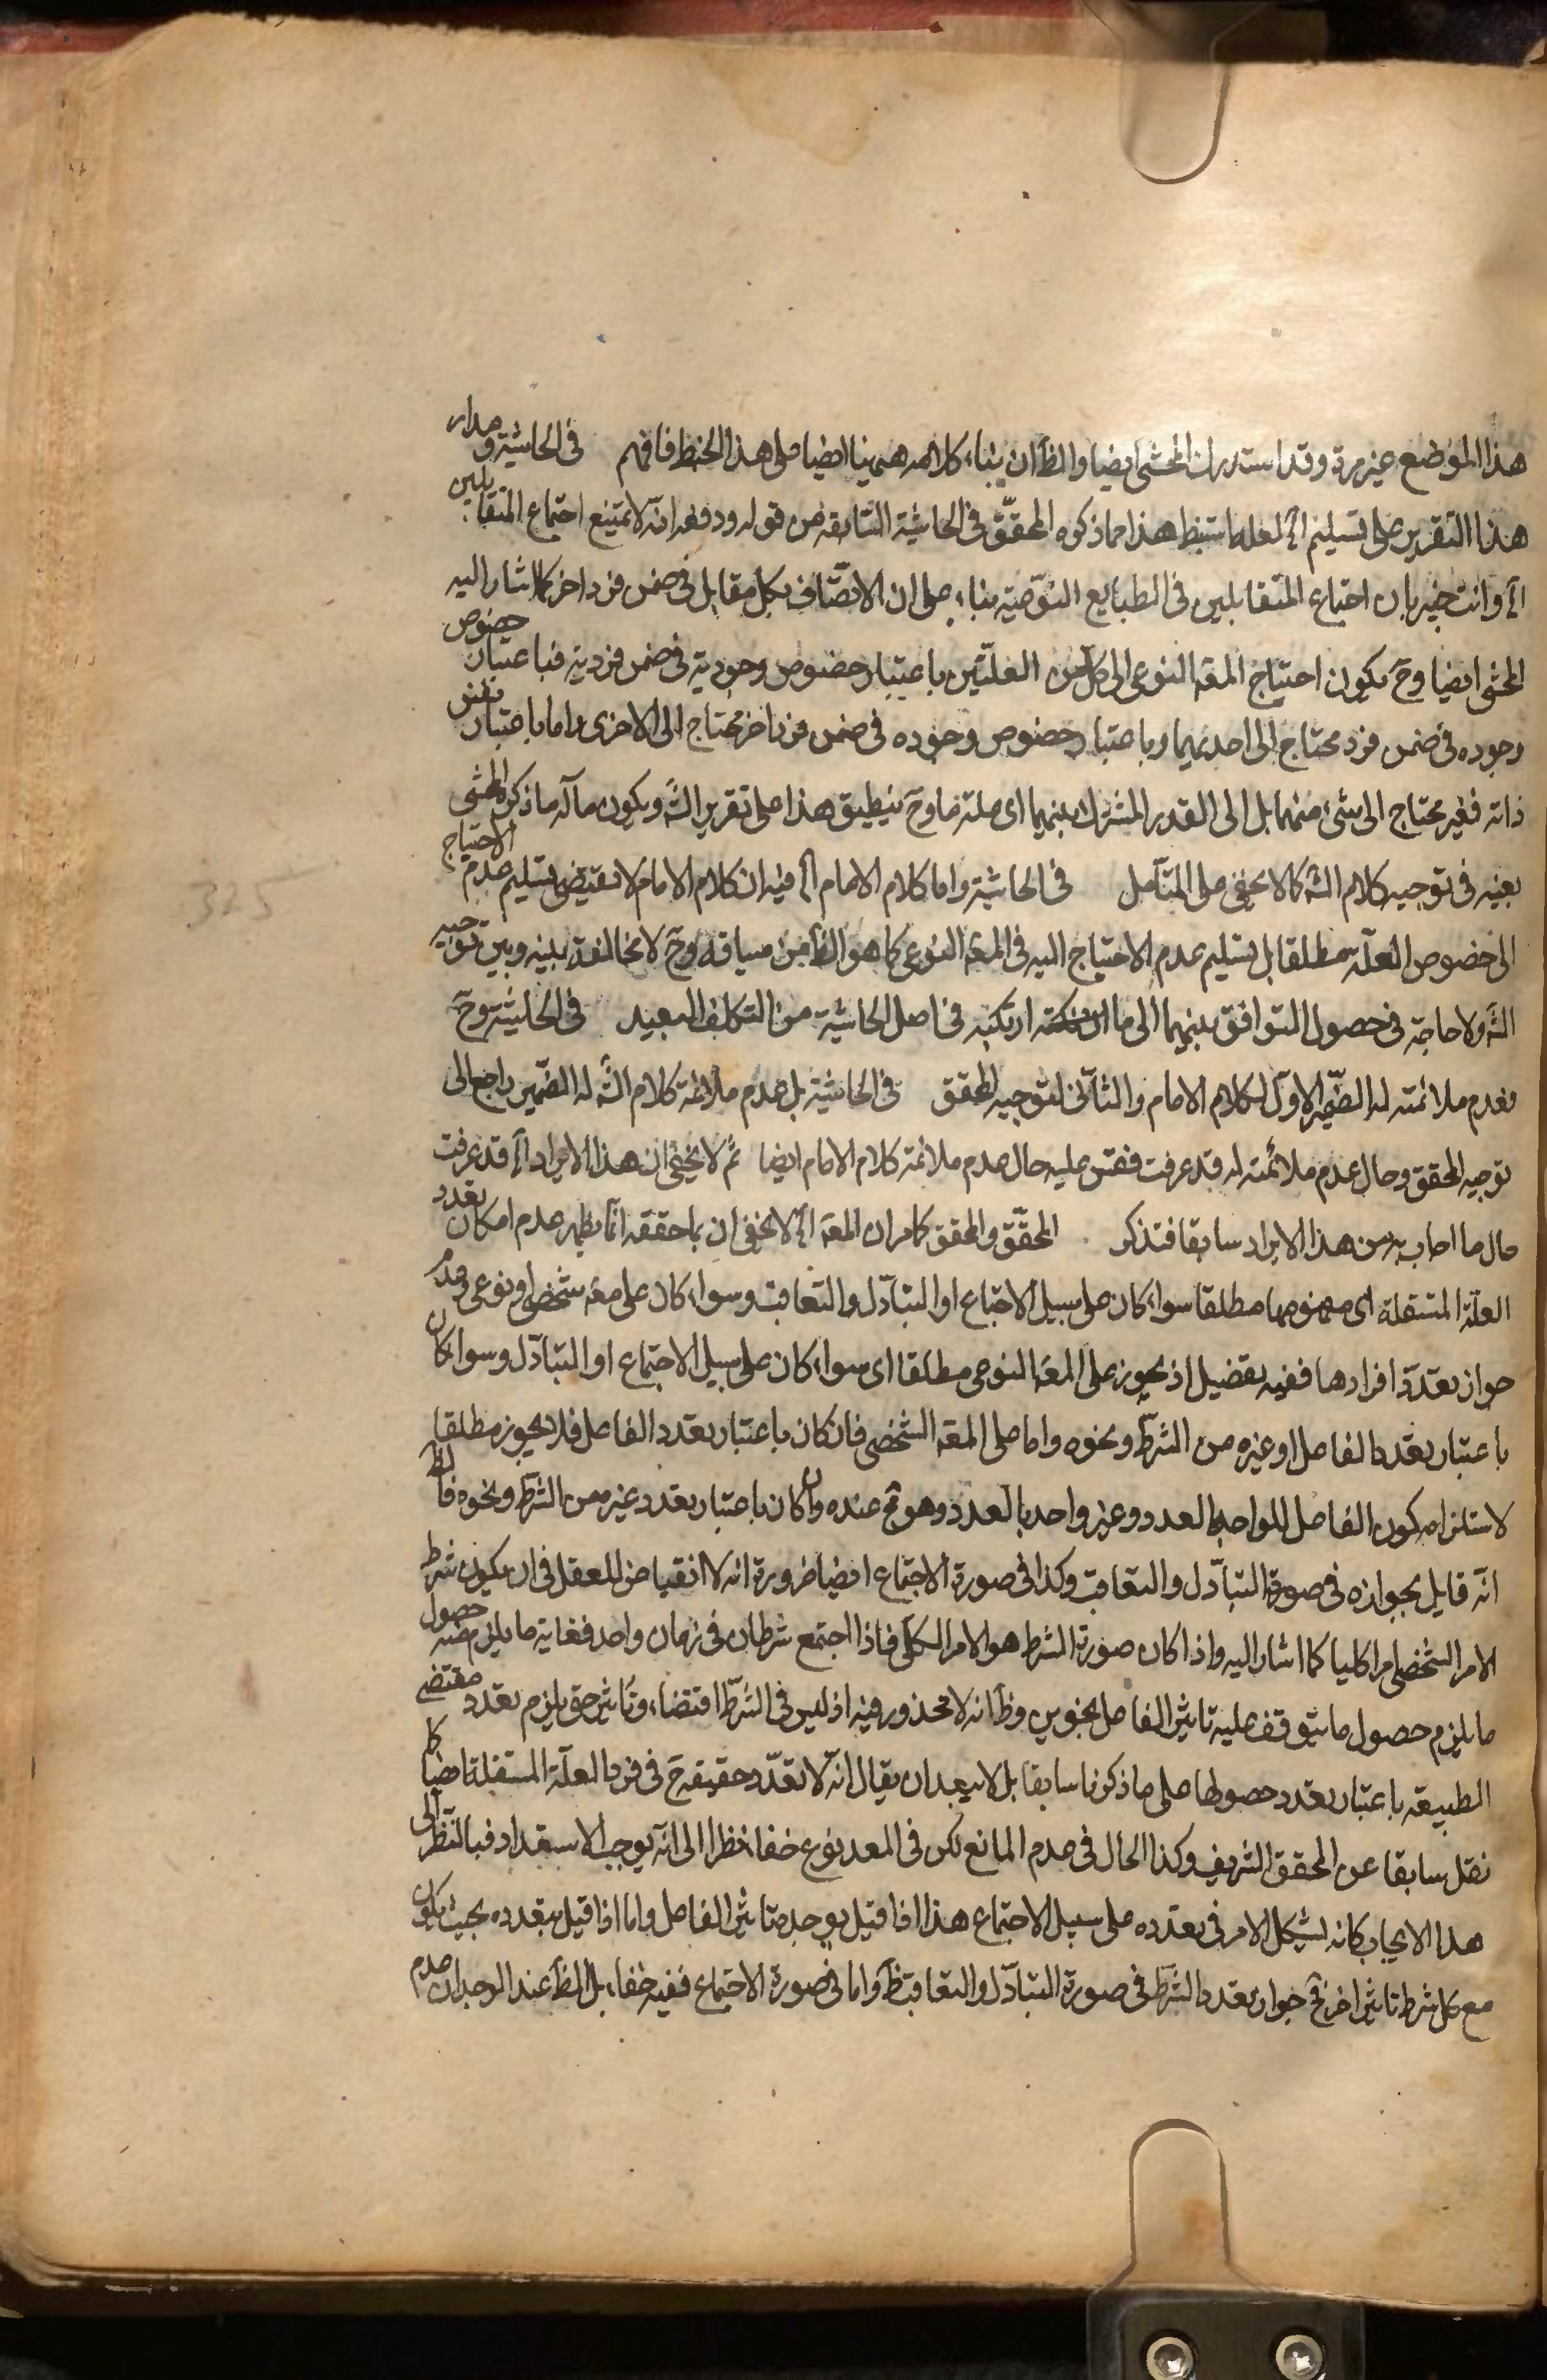 هذا الموضع غير مرة وقد استدرك المحشى ايضا والظ ان بناء كلامه ههنا ايضا على هذا الخبط فافهم في الحاشية ومدار
هذا التقرير على تسليم الخ لعله استنبط هذا مما ذكره المحقق في الحاشية السابقه من قوله ودفعه انه لا يمتنع اجتماع المتقابلين
الخ وانت خبير بان اجتماع المتقابلين في الطبايع النوعية بناء على ان الاتصاف بكل مقابل في ضمن فرد اخر كما اشار اليه
المحشى ايضا وح يكون احتياج المعه النوعى الى كل من العلتين باعتبار خصوص وجودية في ضمن فردية فباعتبار خصوص
وجوده في ضمن فرد محتاج الى احديهما وباعتبار خصوص وجوده في ضمن فرد اخر محتاج الى الاخرى واما باعتبار نفس
ذاته فغير محتاج الى شئ منهما بل الى القدر المشترك بينهما اى علة ما وح ينطبق هذا على تقرير الش ويكون مآله ما ذكره المحشى
بعينه في توجيه كلام الش كما لا يخفى على المتأمل في الحاشية واما كلام الامام الخ فيه ان كلام الامام لا يقتضى تسليم عدم الاحتياج
الى خصوص العلة مطلقا بل تسليم عدم الاحتياج اليه في المعه النوعى كما هو الظ من سياقه وح لا مخالفة بينه وبين توجيه
الش ولا حاجة في حصول التوافق بينهما الى ما ارتكبه في اصل الحاشية من التكلف البعيد في الحاشية وح
فعدم ملائمته له الضمير الاول لكلام الامام والثانى لتوجيه المحقق في الحاشية بل عدم ملائمة كلام الش له الضمير راجع الى
توجيه المحقق وحال عدم ملائمته له قد عرفت فقس عليه حال عدم ملائمة كلام الامام ايضا ثم لا يخفى ان هذا الايراد الخ قد عرفت
حال ما اجاب به من هذا الايراد سابقا فتذكر المحقق والمحقق كامران المعه الخ لا يخفى ان ما حققه انما يظهر عدم امكان تعدد
العلة المستقلة اى مفهومها مطلقا سواء كان على سبيل الاجتماع او التبادل والتعاقب وسواء كان على معه شخصى او نوعى وعدم
جواز تعدد افرادها ففيه تفصيل اذ يجوز على المعه النوعى مطلقا اى سواء كان على سبيل الاجتماع او التبادل وسواء كان
باعتبار تعدد الفاعل او غيره من الشرط ونحوه واما على المعه الشخصى فان كان باعتبار تعدد الفاعل فلا يجوز مطلقا
لاستلزامه كون الفاعل للواحد بالعدد وغير واحد بالعدد وهو مح عنده وان كان باعتبار تعدد غيره من الشرط ونحوه فالظ
انه قايل بجوازه في صورة التبادل والتعاقب وكذا في صورة الاجتماع ايضا ضرورة انه لا انقياض للعقل في ان يكون شرط
الامر الشخصى امرا كليا كما اشار اليه واذا كان صورة الشرط هو الامر الكلى فاذا اجتمع شرطان في زمان واحد فغاية ما يلزم منه حصول
ما يلزم حصول ما يتوقف عليه تاثير الفاعل بنحوين وظ انه لا محذور فيه اذ ليس في الشرط اقتضاء وتاثير حتى يلزم تعدد مقتضى
الطبيعه باعتبار تعدد حصولها على ما ذكرنا سابقا بل لا يبعد ان يقال انه لا تعدد حقيقه ح في فرد العلة المستقلة ايضا كما
نقل سابقا عن المحقق الشريف وكذا الحال في عدم المانع لكن في المعد نوع خفا نظرا الى انه يوجب الاستعداد فبالنظر الى
هذا الايجاب كانه يشكل الامر في تعدده على سبيل الاجتماع هذا اذا قيل بوحدة تاثير الفاعل واما اذا قيل بتعدده بحيث يكون
مع كل شرط تاثير اخر فح جواز تعدد الشرط في صورة التبادل والتعاقب ظ واما في صورة الاجتماع ففيه خفاء بل الظ عند الوجدان عدم
325